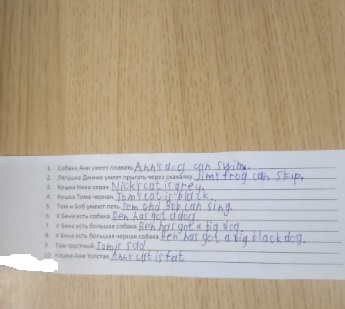 1. Собака Ани умеет плавать. Ann's dog can swim.
2. Лягушка Джима умеет прыгать через скакалку. Jim's frog can skip.
3. Кошка Ника серая. Nick's cat is grey.
4. Кошка Тома черная. Tom's cat is black.
5. Том и Боб умеют петь. Tom and Bob can sing.
6. У Бена есть собака. Ben has got a dog.
7. У Бена есть большая собака. Ben has got a big dog.
8. У Бена есть большая черная собака. Ben has got a big black dog.
9. Том грустный. Tom is sad
10. Кошка Ани толстая. Ann's cat is fat